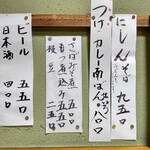 にしんそば 九五〇
つけカレー南ばん 九八〇
さばみそ煮 五五〇
もつ煮込み 五五〇
枝豆 二五〇
ビール 五五〇
日本酒 四〇〇